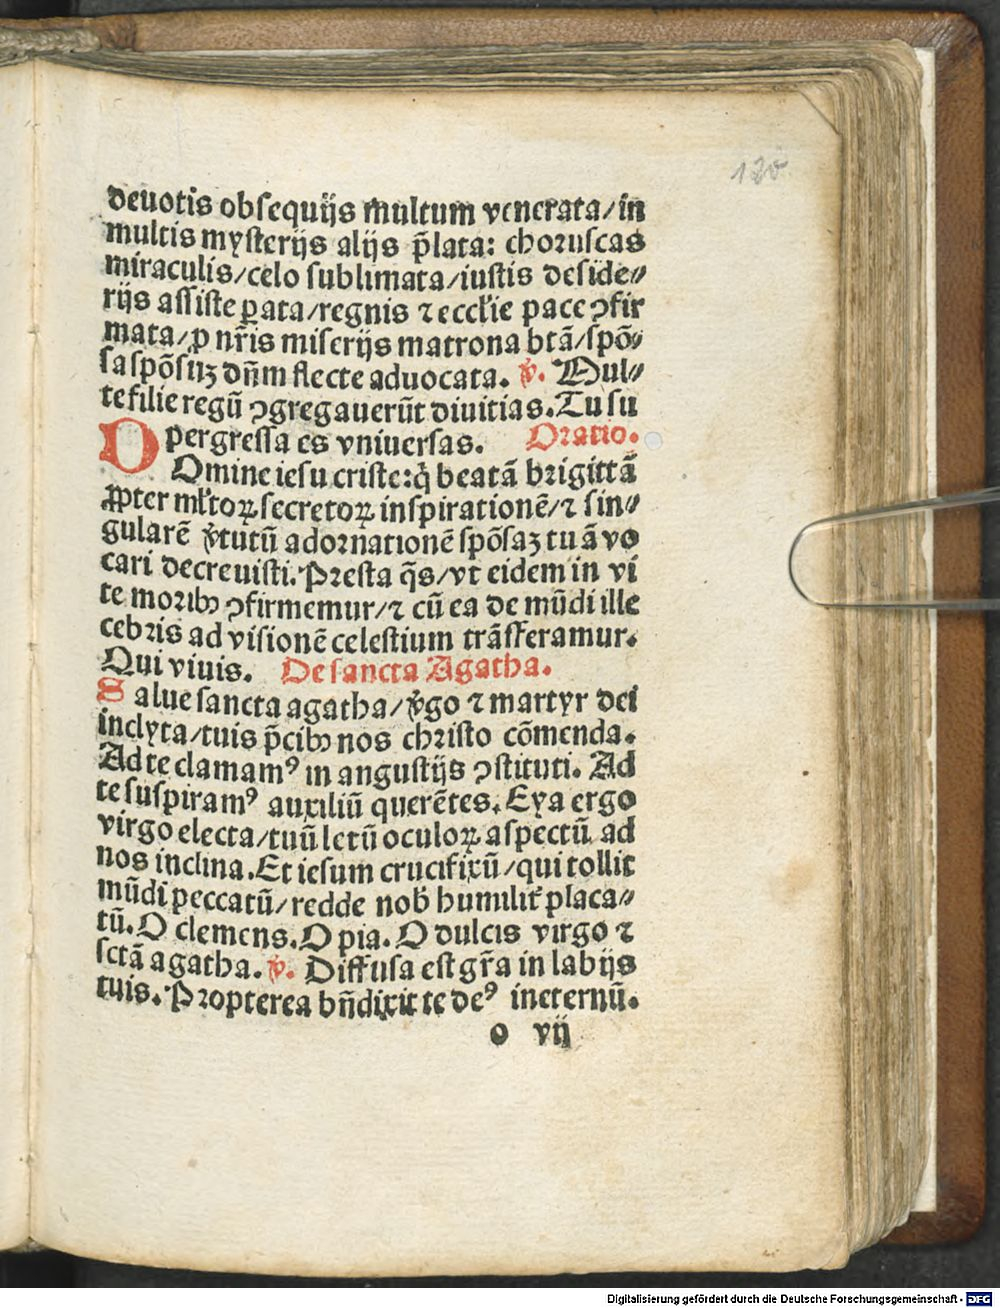 130
deuotis obsequijs multum venerata/in
multis mysterijs alijs p̃lata: choruscas
miraculis/celo sublimata/iustis deside⸗
rijs assiste ꝑata/regnis ⁊ eccl'ie pace ↄfir
mata/ꝓ nr̃is miserijs matrona btã/spõ⸗
sa spõsiꝫ dñm flecte aduocata. ꝟ. Mul⸗
te filie regũ ↄgregauerũt diuitias. Tu su
pergressa es vniuersas. Oratio.
Domine iesu criste: q̇ beatã brigittã
ꝓpter ml'toꝝ secretoꝝ inspirationẽ/⁊ sin⸗
gularẽ ꝟtutũ adornationẽ spõsaꝫ tuã vo
cari decreuisti. Presta q̃s/vt eidem in vi
te moribꝰ ↄfirmemur/⁊ cũ ea de mũdi ille
cebris ad visionẽ celestium trãsferamur.
Qui viuis. De sancta Agatha.
Salue sancta agatha/ꝟgo ⁊ martyr dei
inclyta/tuis p̃cibꝰ nos christo cõmenda.
Ad te clamamꝰ in angustijs ↄstituti. Ad
te suspiramꝰ auxiliũ querẽtes. Eya ergo
virgo electa/tuũ letũ oculoꝝ aspectũ ad
nos inclina. Et iesum crucifixũ/qui tollit
mũdi peccatũ/redde nob̾ humilit̾ placa⸗
tũ. O clemens. O pia. O dulcis virgo ⁊
sctã agatha. ꝟ. Diffusa est gr̃a in labijs
tuis. Propterea bñdixit te deꝰ in eternũ.
o vij
Digitalisierung gefördert durch die Deutsche Forschungsgemeinschaft - DFG